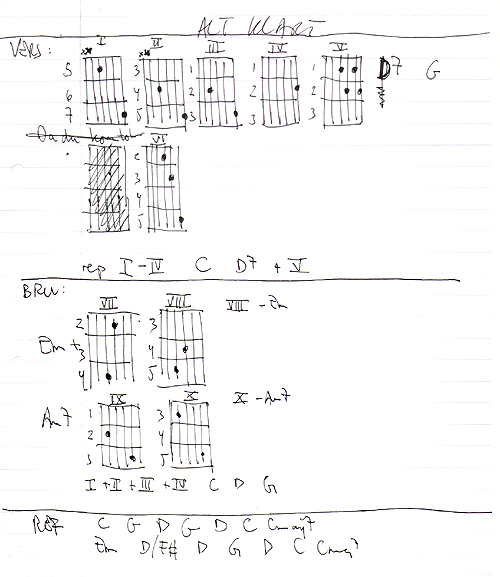 ALT KLART
I II III IV V
VERS:
5 3 1 1 1 D7 G
6 4 2 2 2
7 5 3 3 3
VI
2
3
4
5
rep I-IV C D7 + V
BRU:
VII VIII VIII - Em
2 3
Em + 3 4
4 5
IX X X - Am7
Am7 1 3
2 4
3 5
I + II + III + IV C D G
REF C G D G D C Cmaj7
Em D/F# D G D C Cmaj7